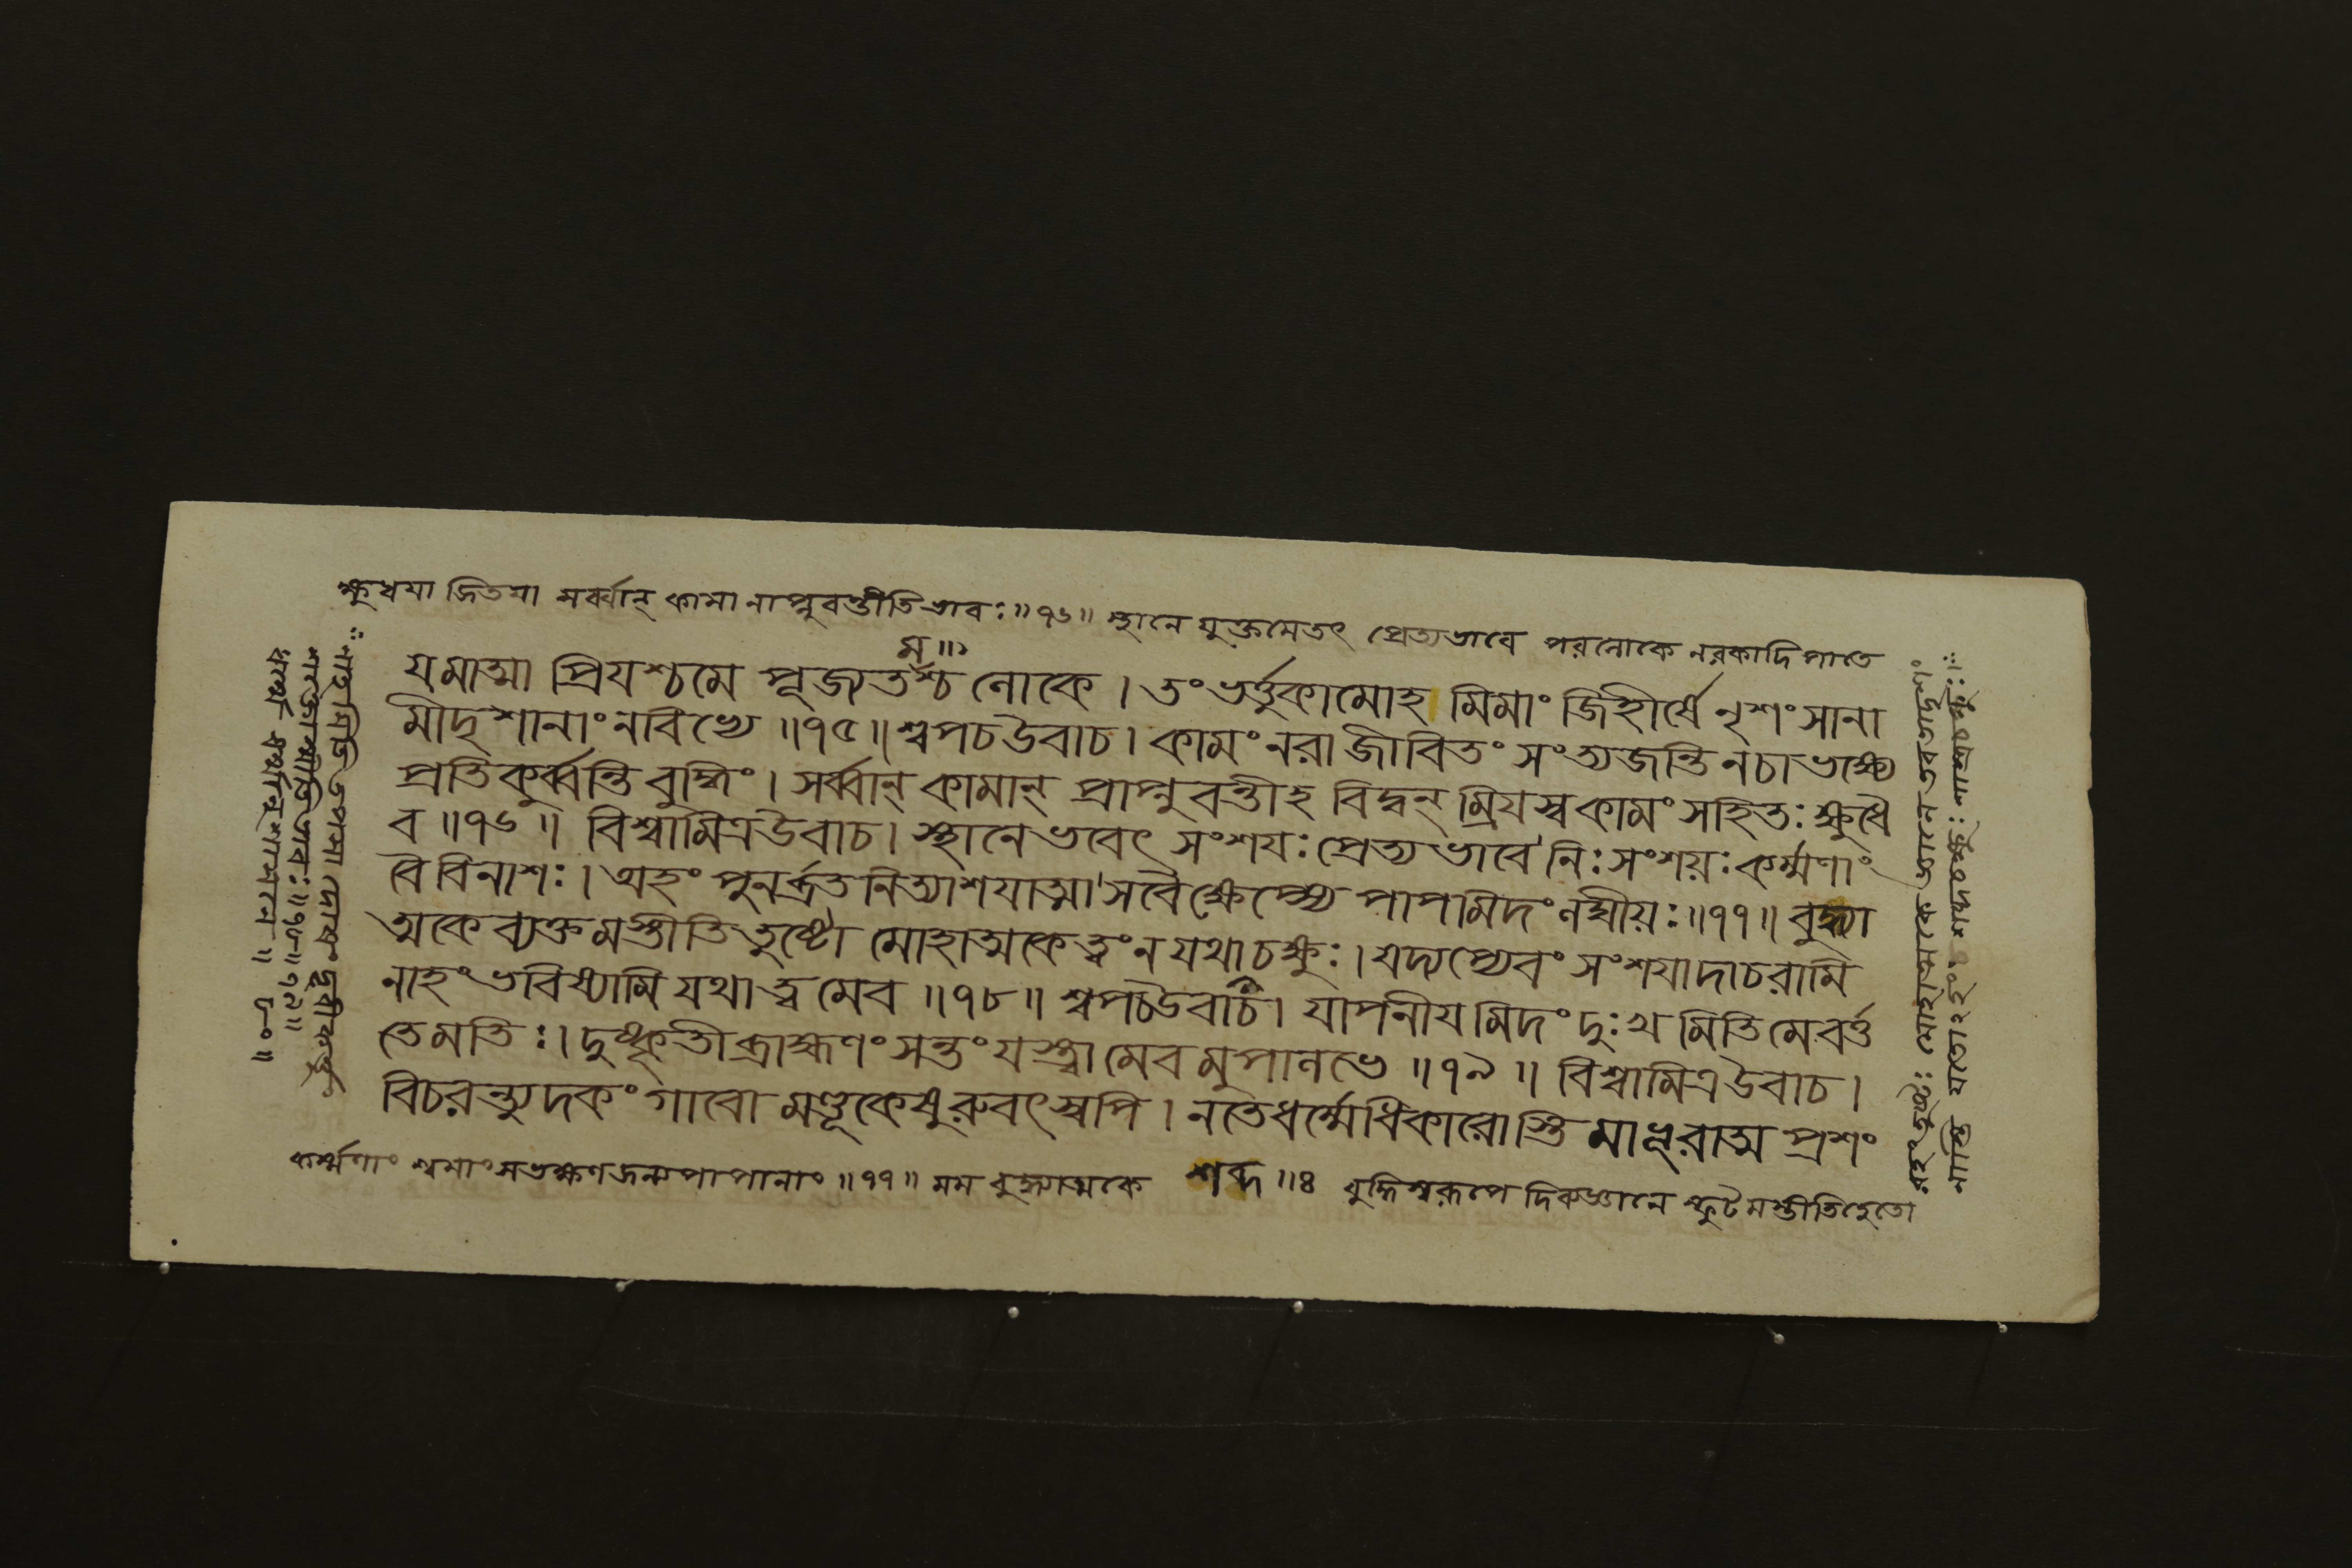 ক্ষুধযা জিতযা সর্ব্বান্ কামা নাপ্নুবন্তীতিভাবঃ॥৭৬॥ স্থানে যুক্তমেতৎ প্রেত্যভাবে পরলোকে নরকাদিপাতে
ম॥১
যমাত্মা প্রিযশ্চমে পূজ্যতশ্চ লোকে। তং ভর্ত্তুকামোহ মিমাং জিহীর্ষে নৃশংসানা
মিদৃশানাং নবিভ্যে॥৭৫॥ শ্বপচউবাচ। কামং নরা জীবিতং সংত্যজন্তি নচাভক্ষ্যে
প্রতিকুর্ব্বন্তি বুদ্ধিং। সর্ব্বান্ কামান্ প্রাপ্নুবন্তীহ বিদ্বন্ ম্রিযস্ব কামং সহিতঃ ক্ষুধৈ
ব॥৭৬॥ বিশ্বামিত্রউবাচ। স্থানে ভবেৎ সংশযঃ প্রেত্য ভাবে নিঃসংশয়ঃ কর্ম্মণাং
বৈ বিনাশঃ। অহং পুনর্ব্রত নিত্যাশযাত্মা সবৈ ক্ষেপ্স্যে পাপমিদং
অকে ব্যক্ত মস্তীতি তুষ্টো মোহাত্মকে ত্বং ন যথা চক্ষুঃ। যদ্যপ্যেবং সংশযাদাচরামি
নাহং ভবিষ্যামি যথা ত্ব মেব॥৭৮॥ শ্বপচউবাচ। যাপনীয মিদং দুঃখ মিতি মে বর্ত্ত
তে মতিঃ। দুষ্কৃতী ব্রাহ্মণং সন্তং যস্ত্বামেব মুপালভে॥৭৯॥ বিশ্বামিত্রউবাচ।
বিচরন্ত্যুদকং গাবো মণ্ডূকেষুরুবৎস্বপি। নতে ধর্ম্মেধিকারোস্তি মাভূরাত্ম প্রশং
কর্ম্মণাং শ্বমাংসভক্ষণজন্যপাপানাং॥৭৭॥ মম বুদ্ধ্যাত্মকে শব্দ॥৪ বুদ্ধিস্বরূপে দিকজ্ঞানে স্ফুটমস্তীতিহেতো
রহং তুষ্টঃ মোহাত্মকে
নাস্তি যতোহহং
ধর্ম্মে ধর্ম্মানুশাসনে॥৮০॥